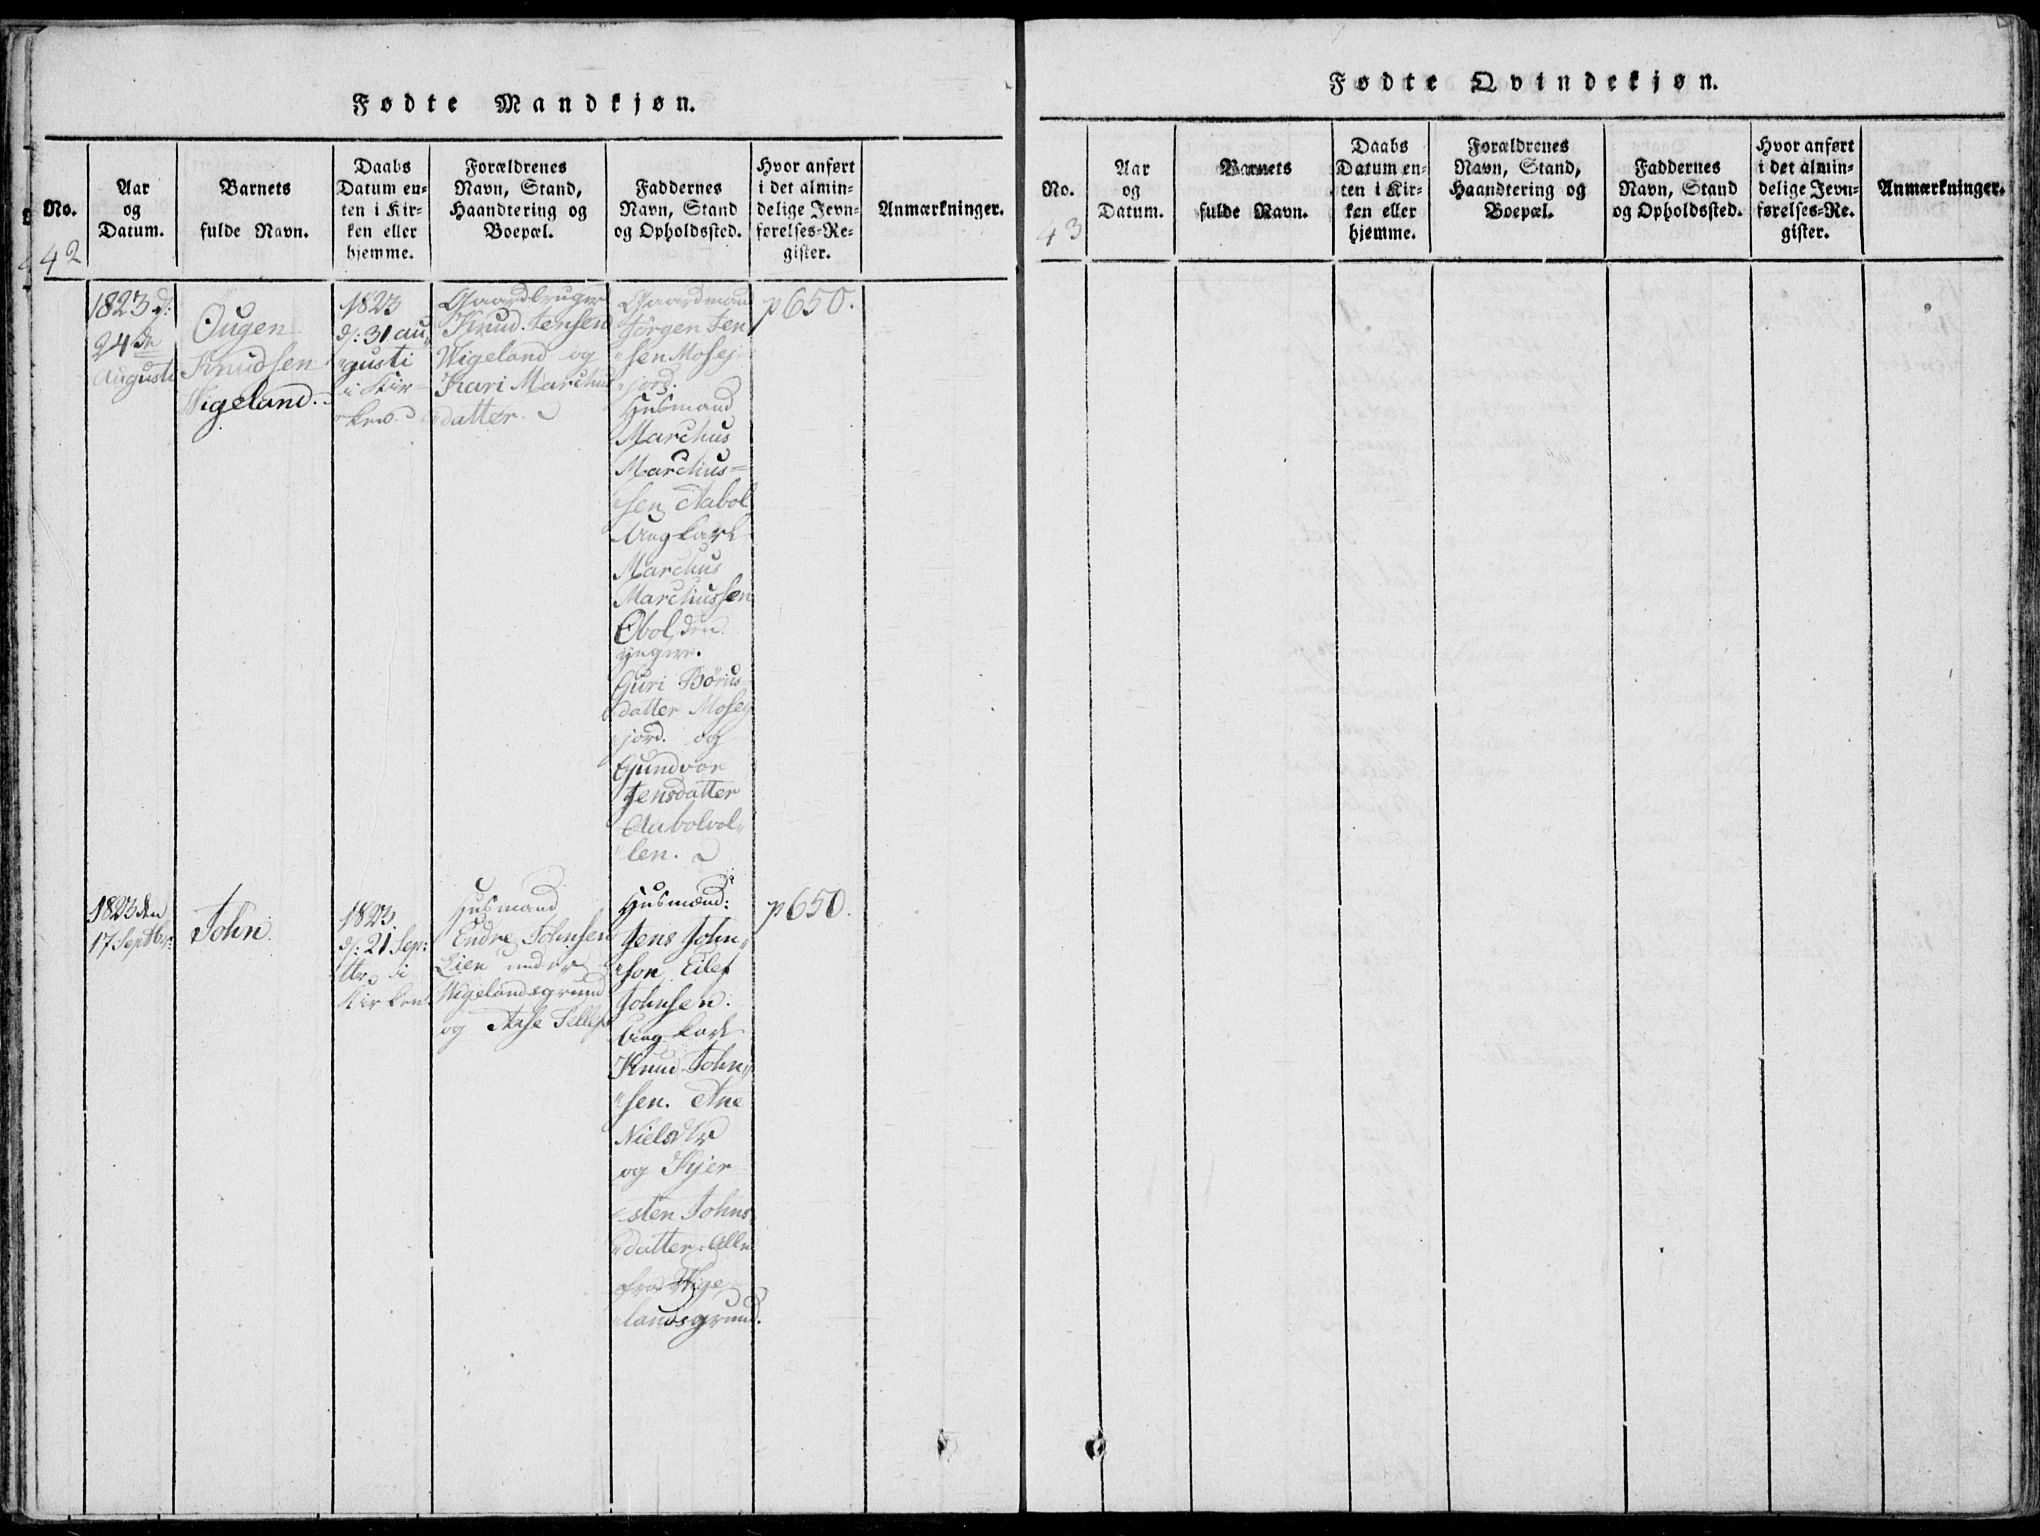 Fødte Mandkjøn.
No.
Aar
og
Datum.
Barnets
fulde Navn.
Daabs
Datum en-
ten i Kir-
ken eller
hjemme.
Forældrenes
Navn, Stand,
Haandtering og
Boepæl.
Faddernes
Navn, Stand
og Opholdssted.
Hvor anført
i det almin-
delige Jevn-
førelses-Re-
gister.
Anmærkninger.
42
1823 d:
24de
Augusti
Øugen
Knudsen
Wigeland.
1823
d: 31 au„
„gusti
i Kir-
„ken
Gaardbruger
Knud Jensen
Wigeland og
Kari Marchus
„datter.
Gaardmand
Jörgen Jen
„sen Mosej
„jord.
Husmand
Marchus
Marchus=
„sen Aabol
Ungkarl
Marchus
Marchussen
Øbol den
yngere.
Guri Börius
datter Mosej
„jord. og
Gundvor
Jensdatter
Aabolvol„
„len.
p 650.
1823 den
17 Septbr:
John.
1823
d: 21 Sep:
tbr i
Kirken
Husmand
Endre Johnsen
Lien under
Wigelandsgrund
og Anse Tellefs
Husmænd:
Jens John„
„son, Eilef
Johnsen.
Ungkarl
Knud John„
„sen. Ane
Nielsdtr
og Kjer
„sten Johns
„datter. Alle
fra Wige
„landsgrund.
p 650.
Fødte Qvindekjøn.
No.
Aar
og
Datum.
Barnets
fulde Navn.
Daabs
Datum en-
ten i Kir-
ken eller
hjemme.
Forældrenes
Navn, Stand,
Haandtering og
Boepæl.
Faddernes
Navn, Stand
og Opholdssted.
Hvor anført
i det almin-
delige Jevn-
førelses-Re-
gister.
Anmærkninger.
43